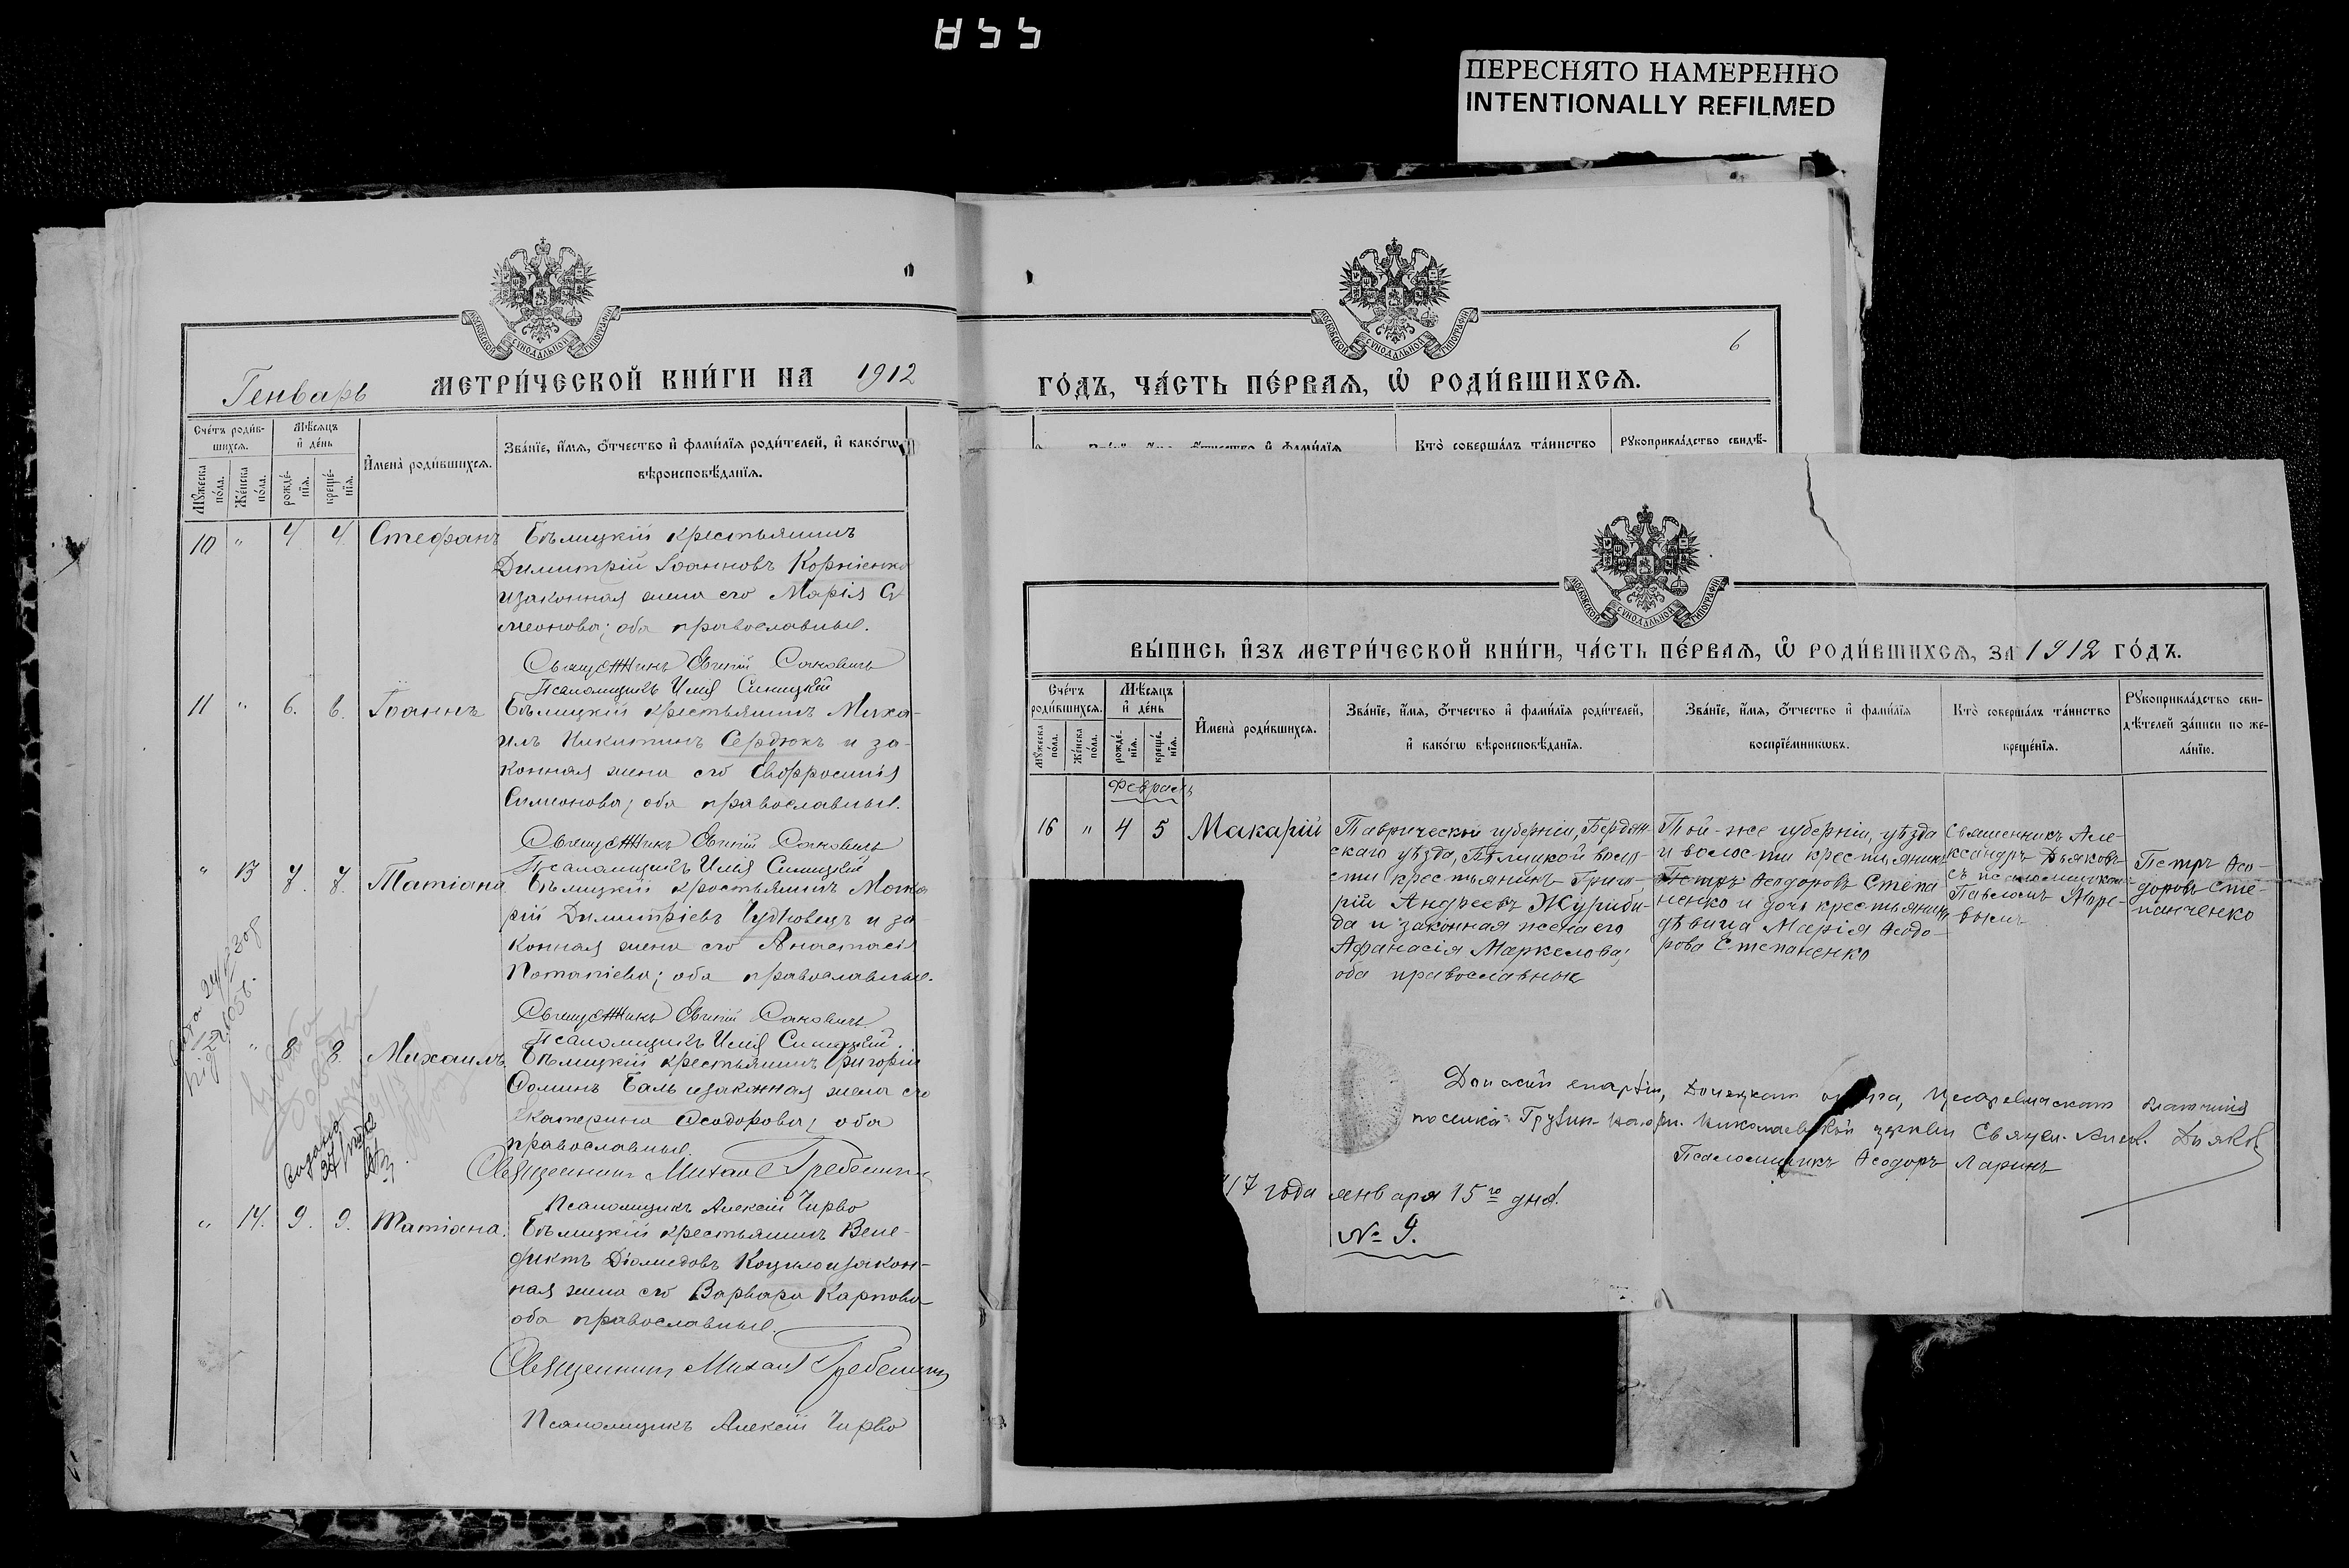 855
ПЕРЕСНЯТО НАМЕРЕННО
INTENTIONALLY REFILMED
МОСКОВСКОЙ СУНОДАЛЬНОЙ ТИПОГРАФІИ
Генварь МЕТРИ́ЧЕСКОЙ КНИ́ГИ НА 1912
Сче́тъ роди́в-
шихсѧ.
Мѣ́сяцъ
и҆ де́нь
Мꙋ́жеска
по́ла.
Же́нска
по́ла.
рожде́-
нїѧ.
креще́-
нїѧ.
И҆мена̀ роди́вшихсѧ.
Зва́нїе, и҆́мѧ, ѻ҆́тчество и҆ фами́лїѧ роди́телей, и҆ како́гѡ
вѣроисповѣ́данїѧ.
10 " 4 4 Стефанъ Бѣлицкій крестьянинъ
Димитрій Іоанновъ Корніенко
и законная жена его Марія Си-
меонова; оба православные.
Священникъ Евгеній Саковичъ
Псаломщикъ Илія Синицкій
11 " 6. 6. Іоаннъ Бѣлицкій крестьянинъ Миха-
илъ Никитинъ Сердюкъ и за-
конная жена его Евфросинія
Симеонова; оба православные.
Священникъ Евгеній Саковичъ
Псаломщикъ Илія Синицкій
" 13 7. 7. Татіана Бѣлицкій крестьянинъ Мака
рій Димитріевъ Чудновецъ и за-
конная жена его Анастасія
Потапіева; оба православные.
Священникъ Евгеній Саковичъ
Псаломщикъ Илія Синицкій.
" 8. 8. Михаилъ. Бѣлицкій крестьянинъ Григорій
Ѳоминъ Баль и законная жена его
Екатерина Ѳеодорова; оба
православные.
Священникъ Михаилъ Гребенник
Псаломщикъ Алексій Чирво
" 14. 9. 9. Татіана. Бѣлицкій крестьянинъ Вене-
диктъ Діомидовъ Коцило и закон-
ная жена его Варвара Карпова
оба православные.
Священникъ Михаилъ Гребенник
Псаломщикъ Алексій Чирво
МОСКОВСКОЙ СУНОДАЛЬНОЙ ТИПОГРАФІИ
6
ГО́ДЪ, ЧА́СТЬ ПЕ́РВАѦ, Ѽ РОДИ́ВШИХСѦ.
Кто̀ соверша́лъ та́инство
Рꙋкоприкла́дство свидѣ́-
МОСКОВСКОЙ СУНОДАЛЬНОЙ ТИПОГРАФІИ
ВЫ́ПИСЬ И҆ЗЪ МЕТРИ́ЧЕСКОЙ КНИ́ГИ, ЧА́СТЬ ПЕ́РВАѦ, Ѽ РОДИ́ВШИХСѦ, ЗА 1912 ГО́ДЪ.
Сче́тъ
роди́вшихсѧ.
Мѣ́сяцъ
и҆ де́нь
Мꙋ́жеска
по́ла.
Же́нска
по́ла.
рожде́-
нїѧ.
креще́-
нїѧ.
И҆мена̀ роди́вшихсѧ.
Зва́нїе, и҆́мѧ, ѻ҆́тчество и҆ фами́лїѧ роди́телей,
и҆ како́гѡ вѣроисповѣ́данїѧ.
Зва́нїе, и҆́мѧ, ѻ҆́тчество и҆ фами́лїѧ
воспрїе́мникѡвъ.
Кто̀ соверша́лъ та́инство
креще́нїѧ.
Рꙋкоприкла́дство сви-
дѣ́телей за́писи по же-
ла́нїю.
Февраль
16 " 4 5 Макарій
Таврической губерніи, Бердян-
скаго уѣзда, Бѣлицкой воло-
сти крестьянинъ Григо-
рій Андреевъ Журиби-
да и законная жена его
Афанасія Маркелова;
оба православные
Той-же губерніи, уѣзда
и волости крестьянинъ
Петръ Ѳеодоровъ Степа
ненко и дочь крестьянина
дѣвица Марія Ѳеодо-
рова Степаненко
Священникъ Але-
ксандръ Дьяковъ
съ псаломщикомъ
Павломъ Маре-
вымъ
Петръ Ѳео-
доровъ Сте-
панченко
Донской епархіи, Донецкаго округа,
поселка Грузин- Николаевской церкви Священ. Алекс. Дьяков
Псаломщикъ Ѳеодоръ Ларинъ
17 года января 15го дня.
№ 9.